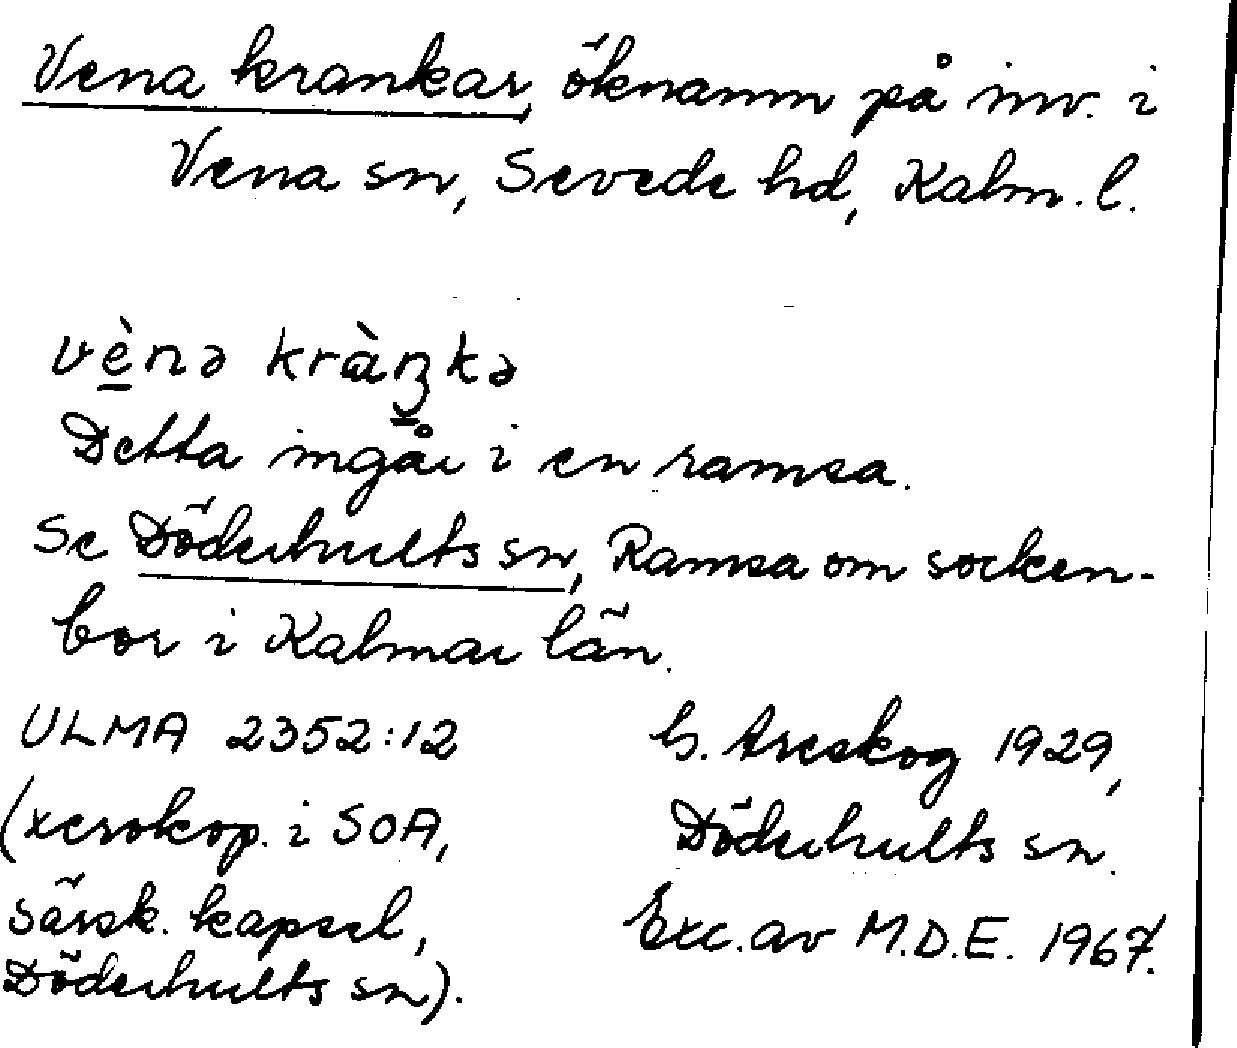 Vena krankar, öknamn på inv. i
Vena sn, Sevede hd, Kalm. l.
vènə kràŋkə
Detta ingår i en ramsa.
Se Döderhults sn, Ramsa om socken-
bor i Kalmar län.
ULMA 2352:12
(xerokop. i SOA,
särsk. kapsel,
Döderhults sn).
G. Areskog 1929,
Döderhults sn.
Exc. av M.D.E. 1967.